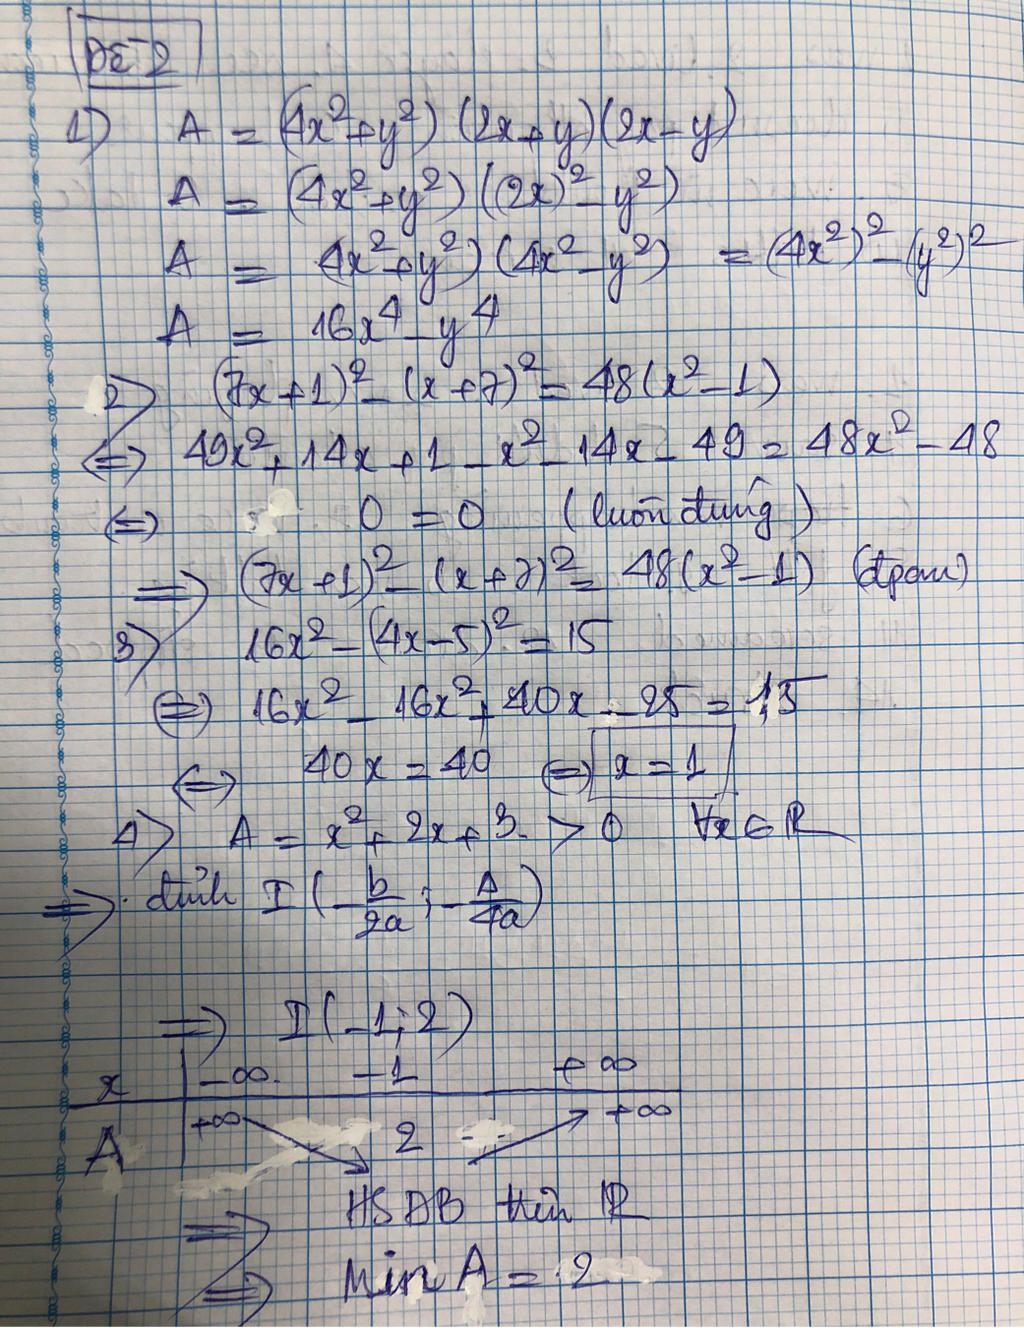 ĐỀ 2
1) A = (4x²+y²)(2x+y)(2x-y)
A = (4x²+y²)((2x)²-y²)
A = 4x²+y²)(4x²-y²) = (4x²)²-(y²)²
A = 16x⁴-y⁴
2) (7x+1)²-(x+7)² = 48(x²-1)
⇔ 49x²+14x+1-x²-14x-49 = 48x²-48
⇔ 0 = 0 (luôn đúng)
⇒ (7x+1)²-(x+7)² = 48(x²-1) (đpcm)
3) 16x²-(4x-5)² = 15
⇔ 16x²-16x²+40x-25 = 15
⇔ 40x = 40 ⇔ x = 1
4) A = x²+2x+3 > 0 ∀x∈R
⇒ đỉnh I(-b/2a; -Δ/4a)
⇒ I(-1; 2)
x -∞ -1 +∞
A +∞ 2 +∞
⇒ HSĐB trên R
⇒ Min A = 2